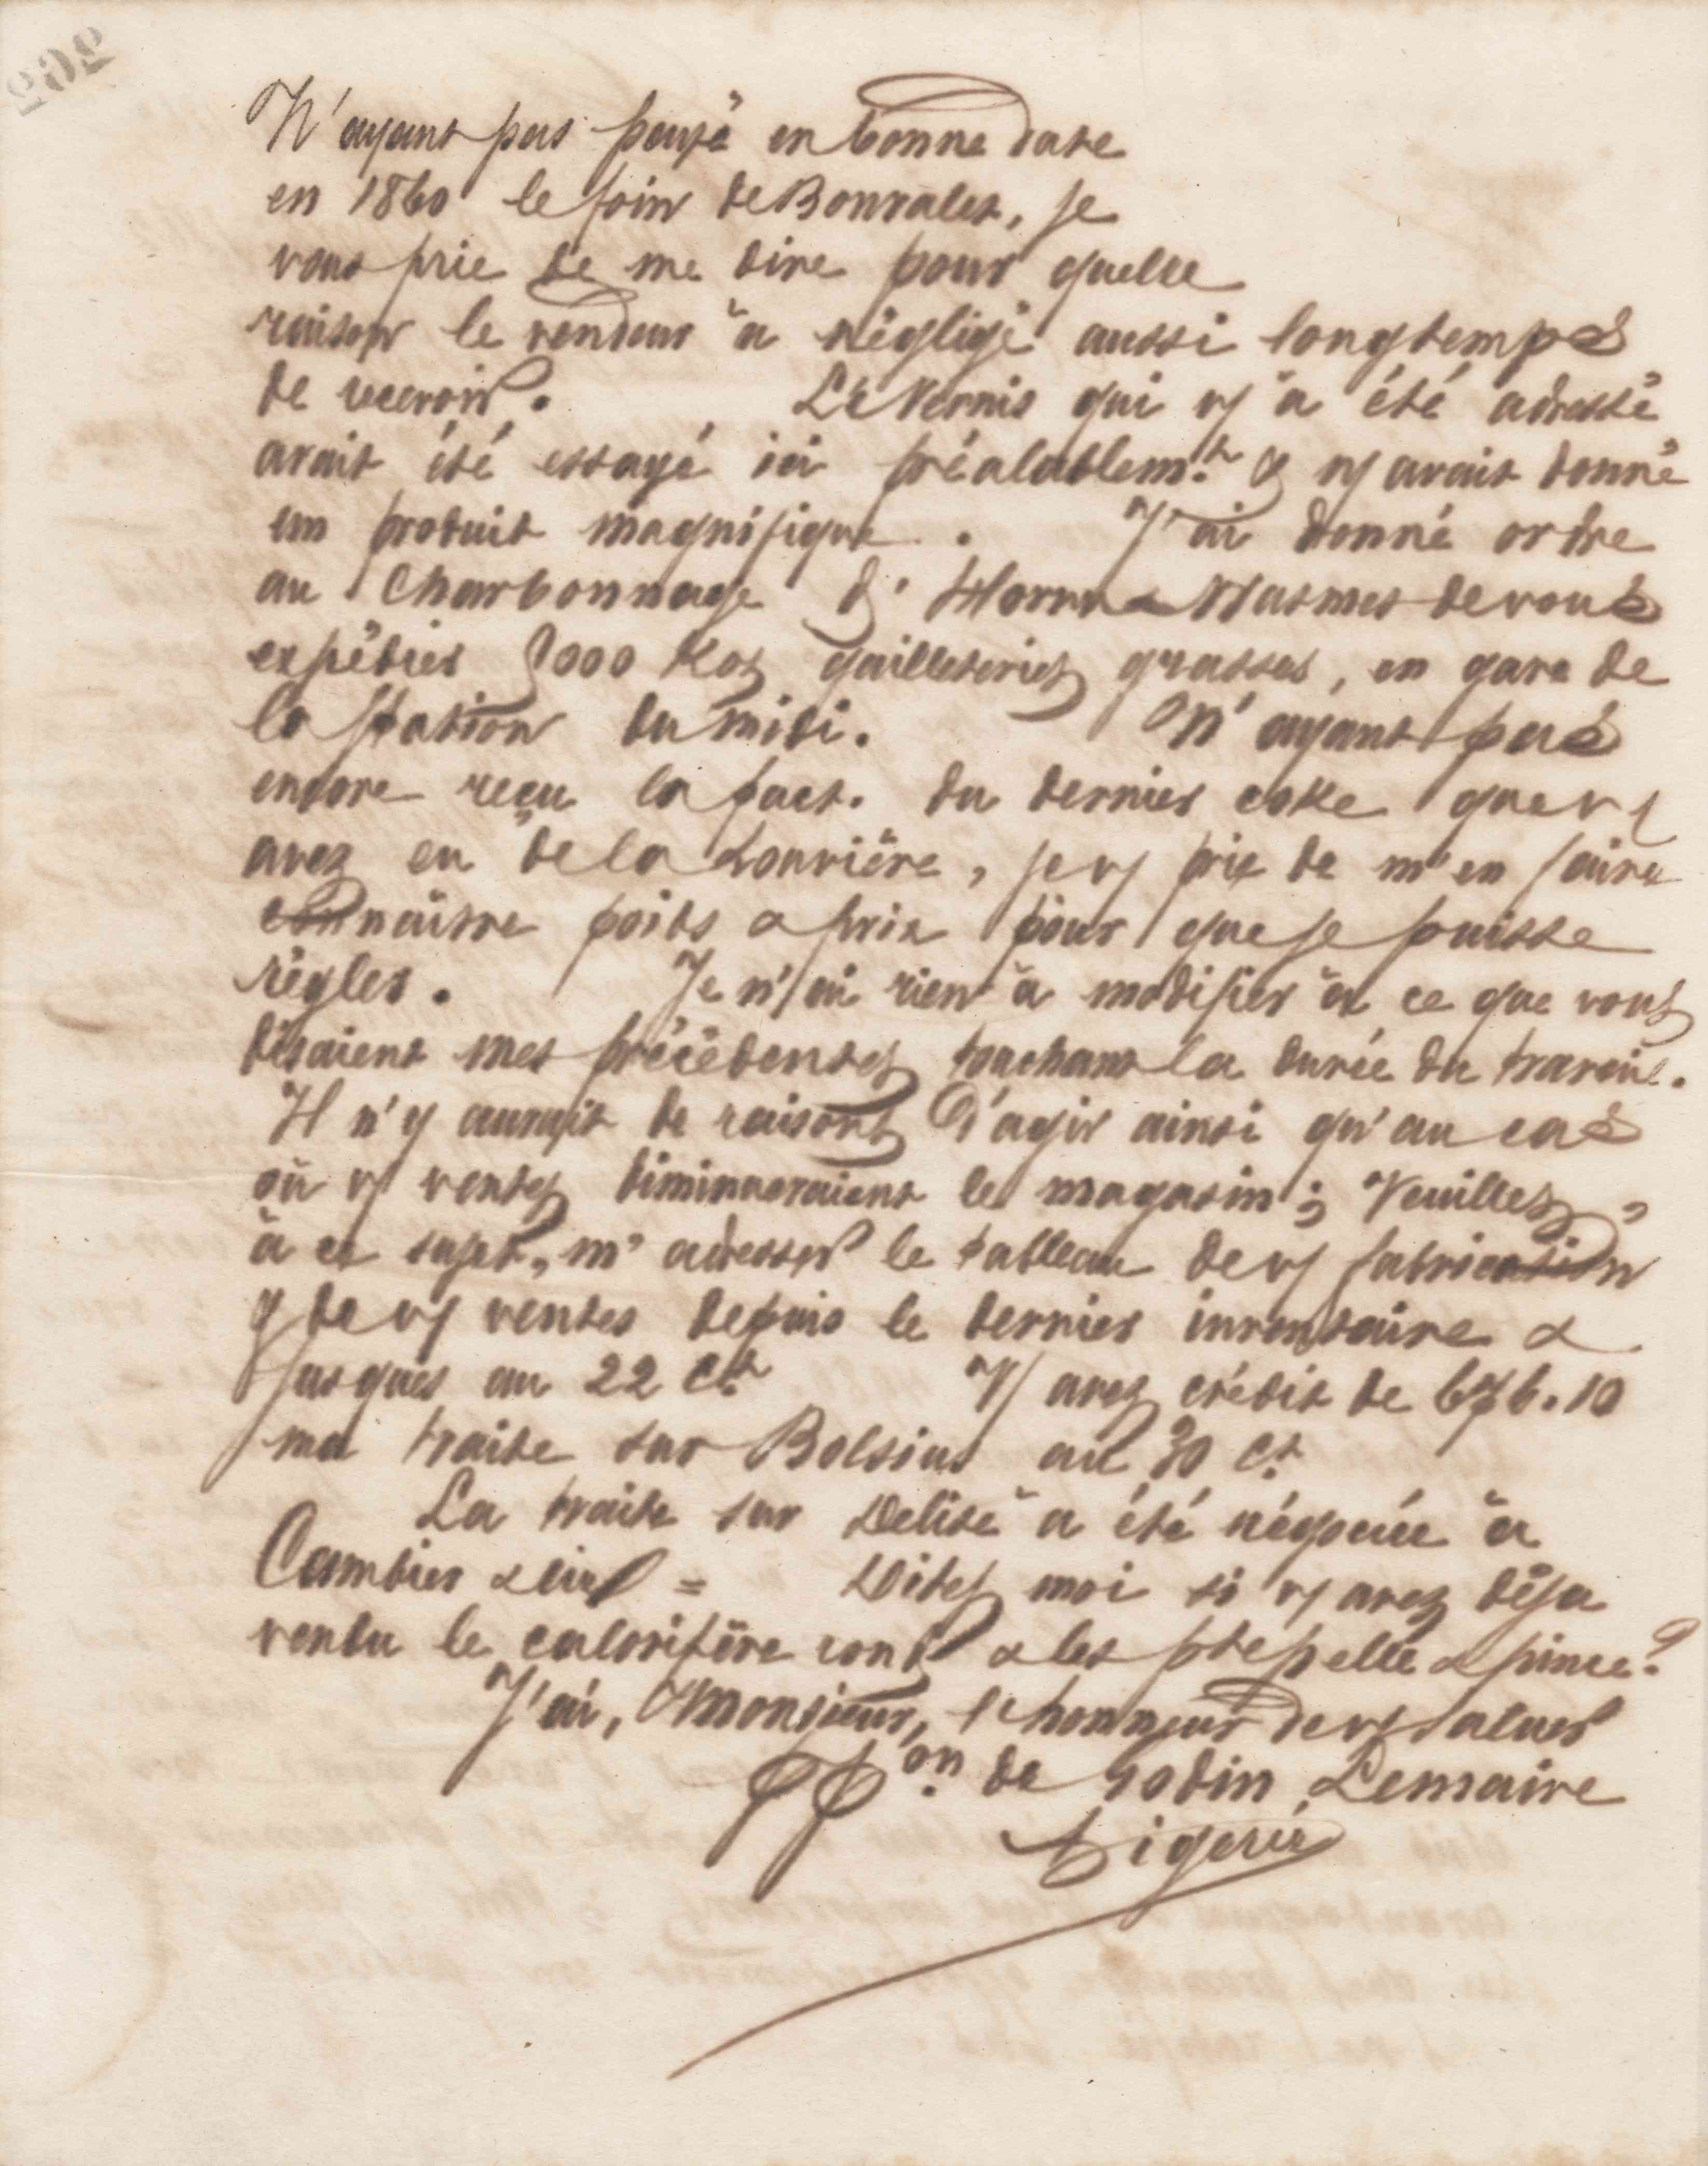 N'ayant pas payé en bonne date
en 1860 le foin de Bonvalet, je
vous prie de me dire pour quelle
raison le vendeur a négligé aussi longtemps
de recevoir. Le Vernis qui vs a été adressé
avait été essayé ici préalablemt. & ns avait donné
un produit magnifique. J'ai donné ordre
au Charbonnage d' Hornu & Wasmes de vous
expédier 5000 Kos gailleteries grasses, en gare de
la station du midi. N'ayant pas
encore reçu la fact. du dernier coke que vs
avez eu de la Louvière, je vs prie de m'en faire
connaître poids & prix pour que je puisse
régler. Je n'ai rien à modifier à ce que vous
disaient mes précédentes touchant la durée du travail.
Il n'y aurait de raisons d'agir ainsi qu'au cas
où vs ventes diminueraient le magasin ; Veuillez,
à ce sujet, m' adresser le tableau de vs fabrication
& de vs ventes depuis le dernier inventaire &
jusques au 22 ct. Vs avez crédit de 676.10
ma traite sur Bolsius au 30 ct.
La traite sur Delisé a été négociée à
Cambier & Cie = Dites moi si vs avez déjà
vendu le calorifère rond & les pte pelle & pince ?
J'ai, Monsieur, l'honneur de vs saluer
P Pon. de Godin Lemaire